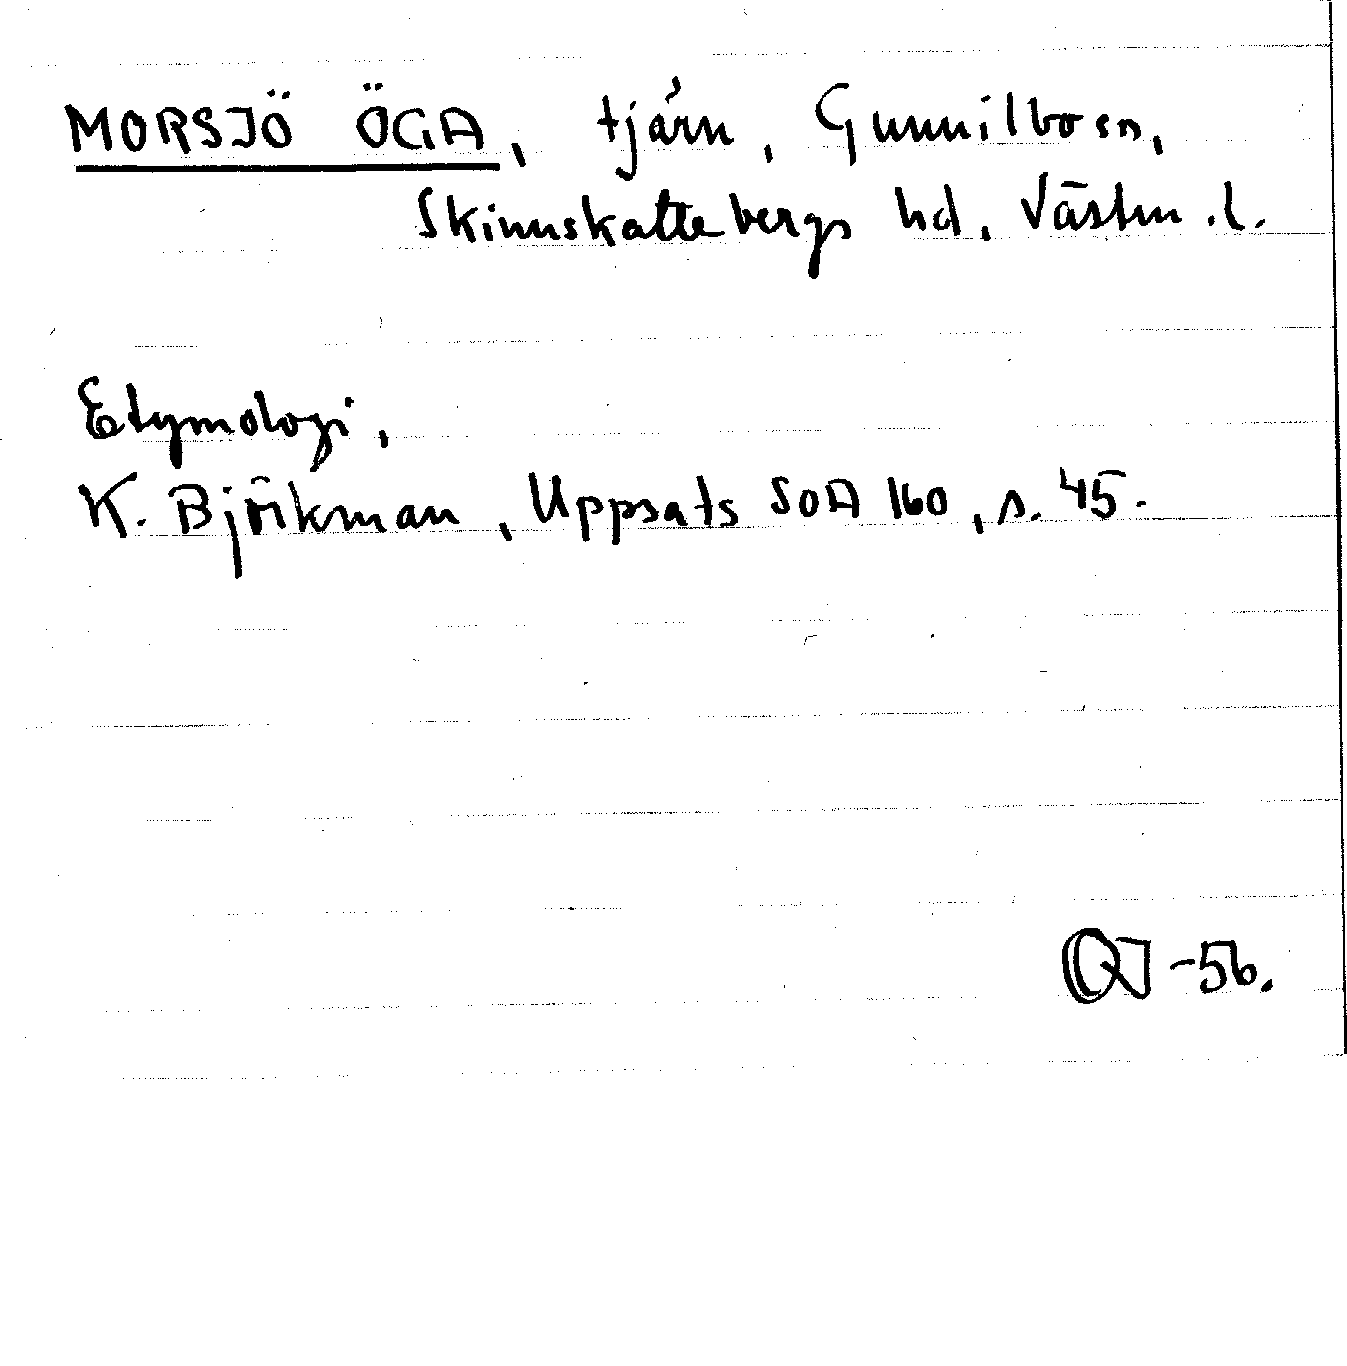 MORSJÖ ÖGA, tjärn, Gunnilbo sn,
Skinnskattebergs hd, Västm. l.
Etymologi,
K. Björkman, Uppsats SOA 160, s. 45.
-56.